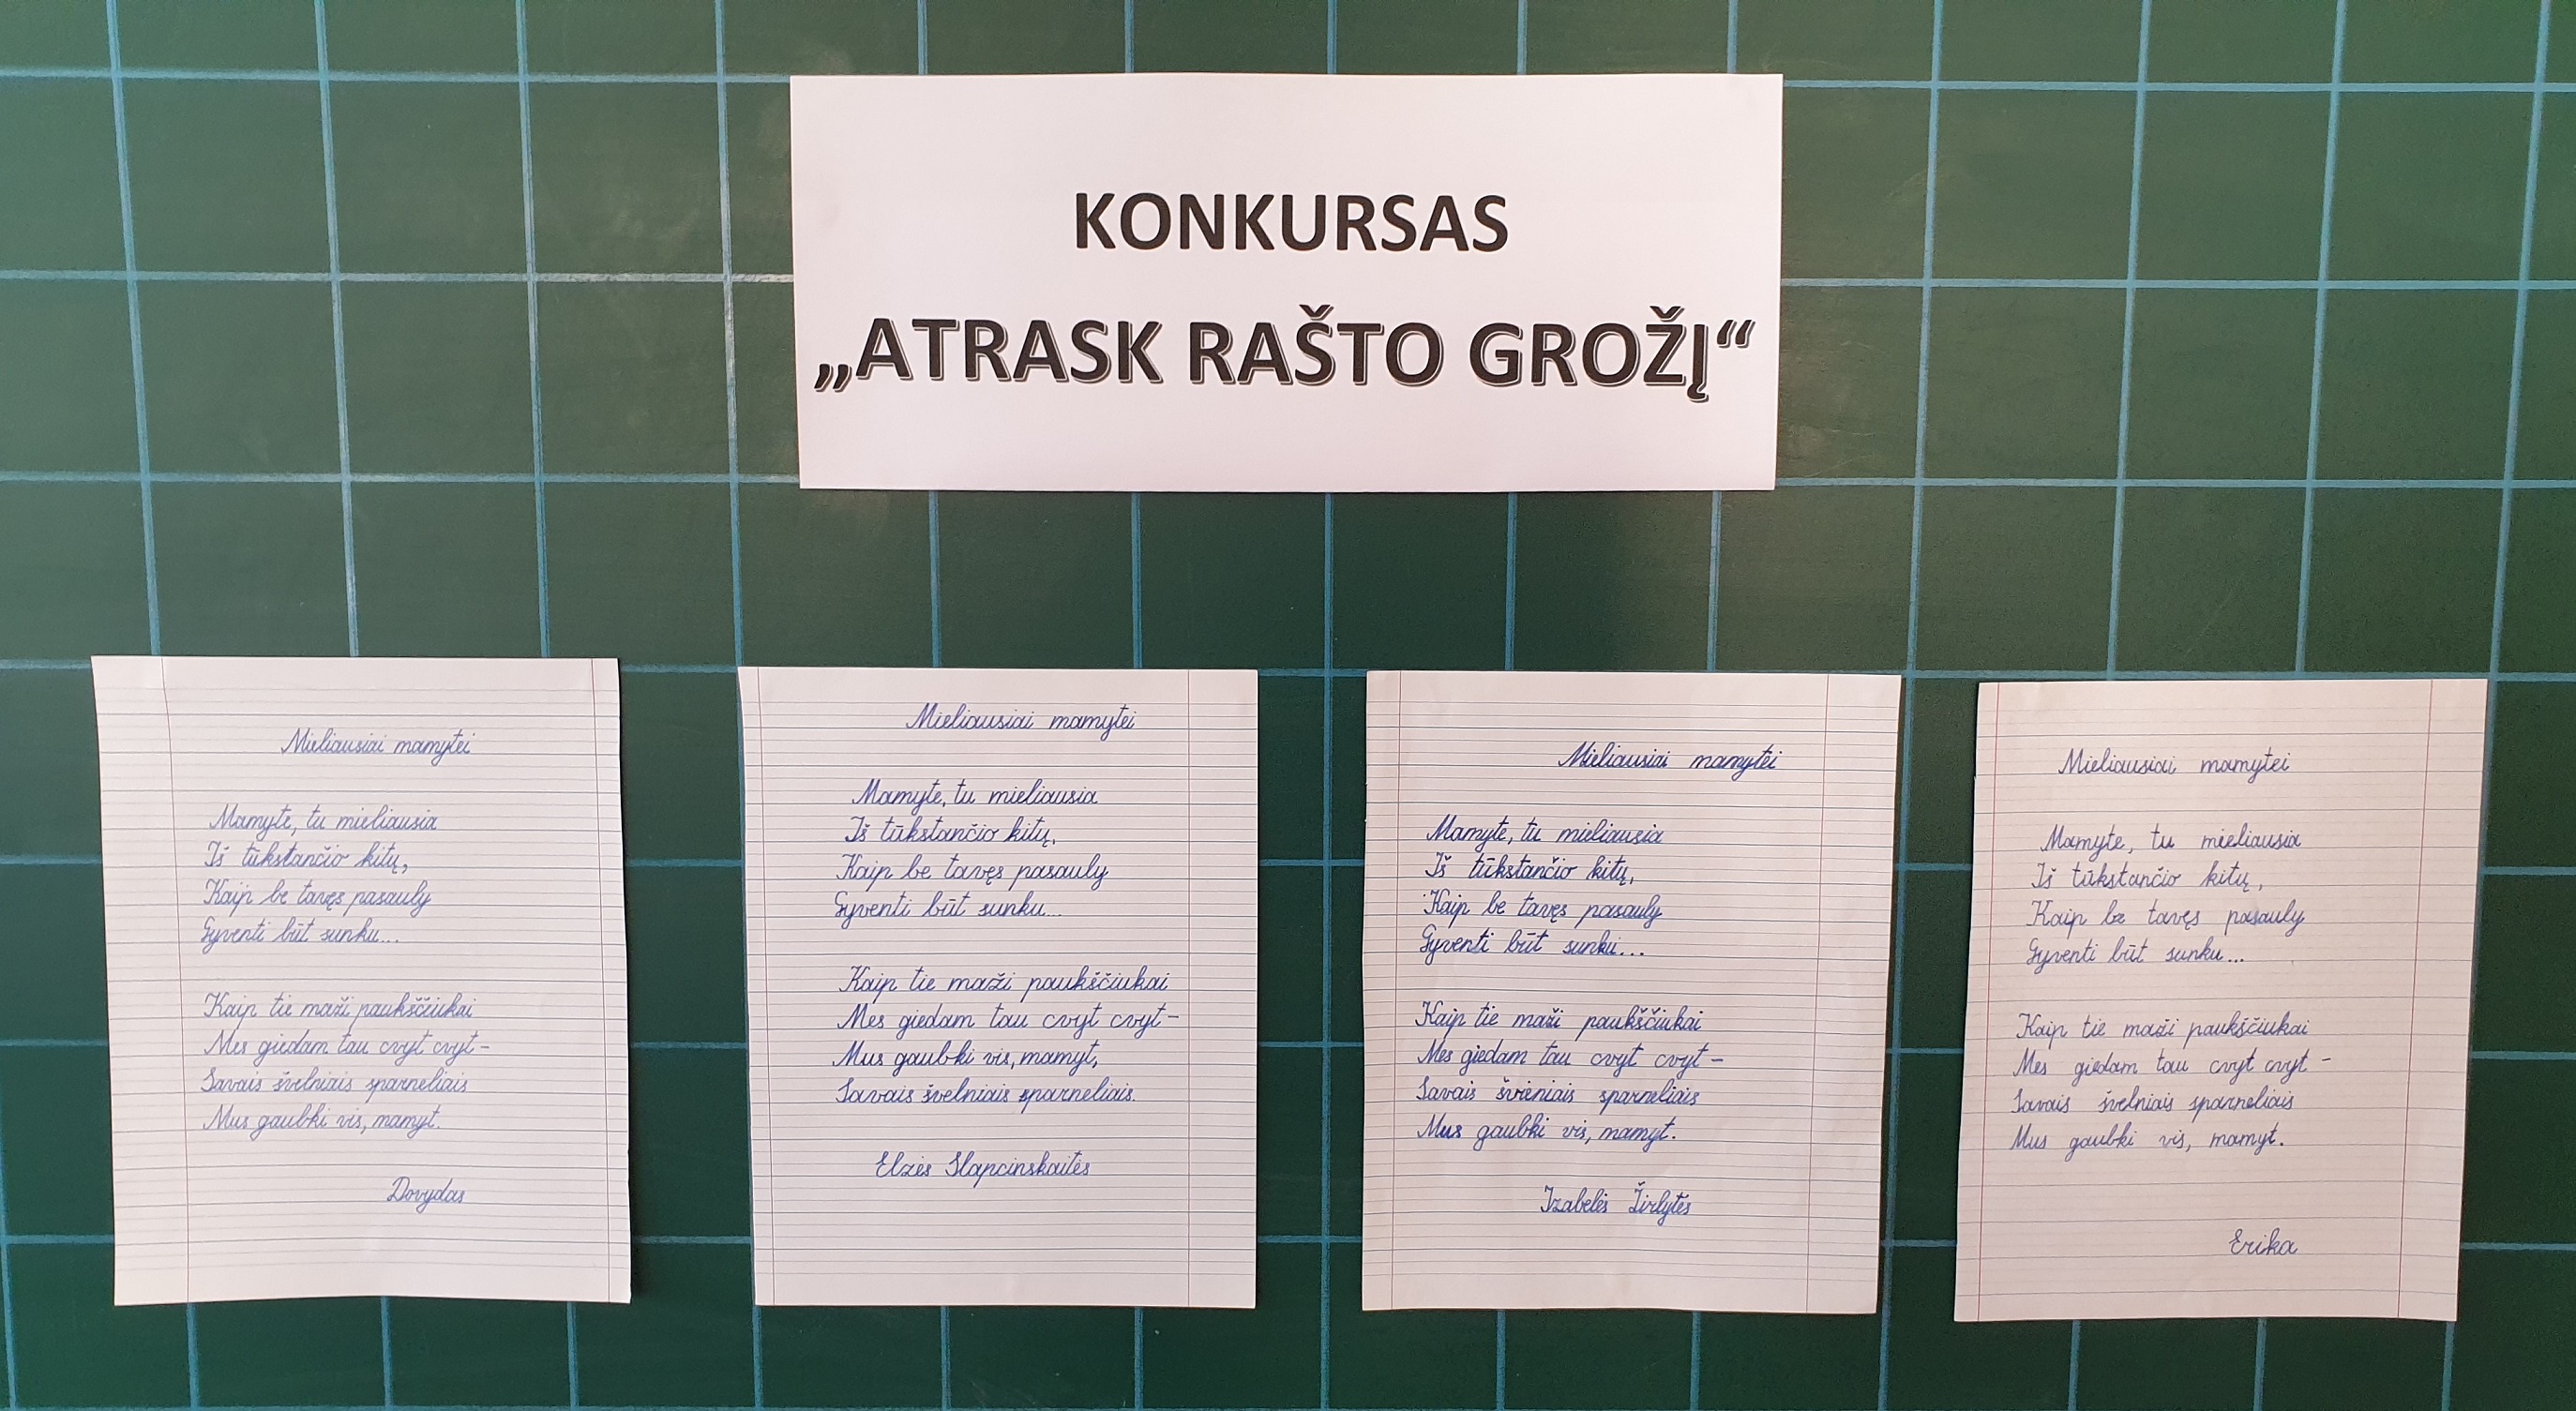 KONKURSAS
„ATRASK RAŠTO GROŽĮ“
Mieliausiai mamytei
Mamyte, tu mieliausia
Iš tūkstančio kitų,
Kaip be tavęs pasauly
Gyventi būt sunku...
Kaip tie maži paukščiukai
Mes giedam tau cvyt cvyt-
Savais švelniais sparneliais
Mus gaubki vis, mamyt.
Dovydas
Mieliausiai mamytei
Mamyte, tu mieliausia
Iš tūkstančio kitų,
Kaip be tavęs pasauly
Gyventi būt sunku...
Kaip tie maži paukščiukai
Mes giedam tau cvyt cvyt-
Mus gaubki vis, mamyt,
Savais švelniais sparneliais.
Elzės Slapcinskaitės
Mieliausiai mamytei
Mamyte, tu mieliausia
Iš tūkstančio kitų,
Kaip be tavęs pasauly
Gyventi būt sunku...
Kaip tie maži paukščiukai
Mes giedam tau cvyt cvyt-
Savais sparneliais
Mus gaubki vis, mamyt.
Izabelės Žirlytės
Mieliausiai mamytei
Mamyte, tu mieliausia
Iš tūkstančio kitų,
Kaip be tavęs pasauly
Gyventi būt sunku...
Kaip tie maži paukščiukai
Mes giedam tau cvyt cvyt-
Savais švelniais sparneliais
Mus gaubki vis, mamyt.
Erika